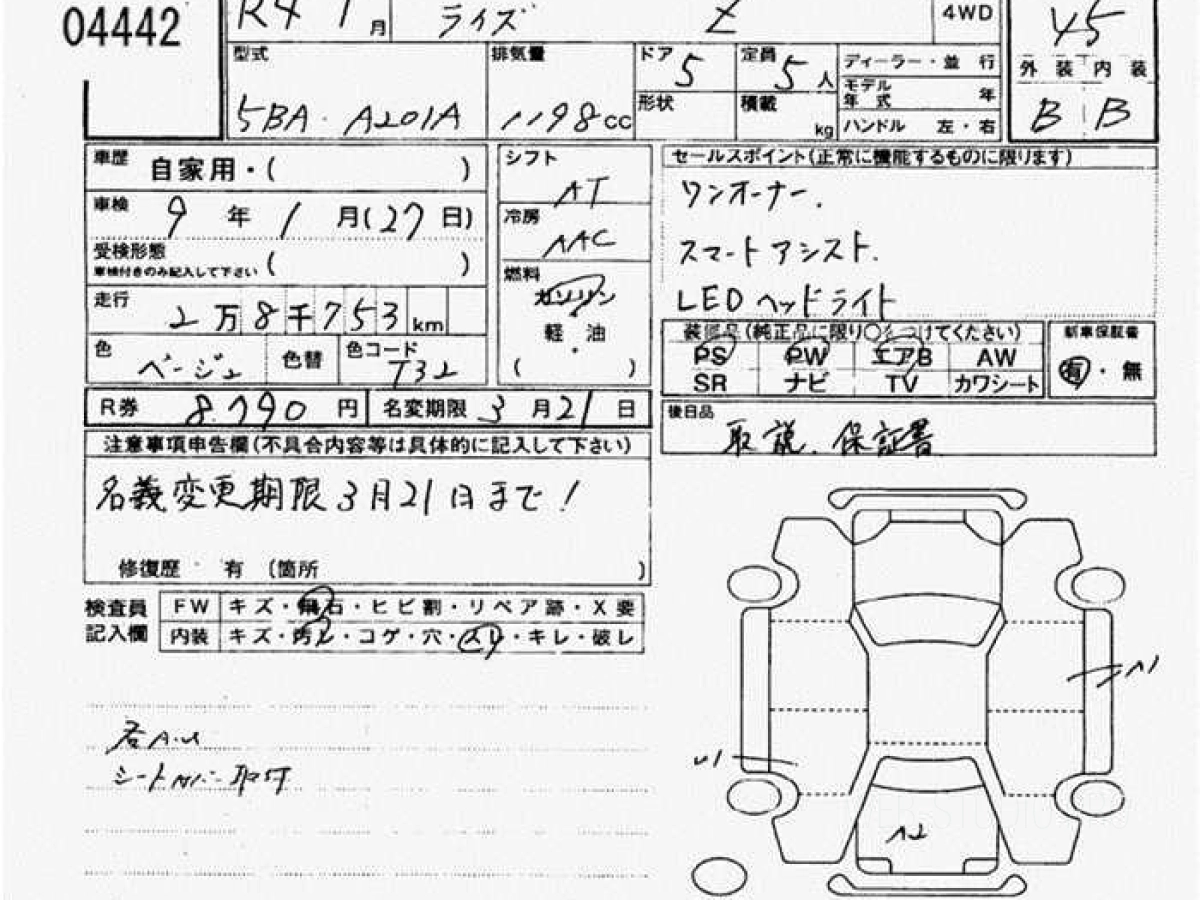 04442
R4 1月 ライズ Z 4WD 45
型式 排気量 ドア 5 定員 5人 ディーラー・並行 外装 内装
5BA-A201A 1198cc 形状 積載 kg モデル年式 年 B B
ハンドル 左・右
車歴 自家用・( ) シフト AT セールスポイント(正常に機能するものに限ります)
車検 9年 1月(27日) 冷房 AAC ワンオーナー.
受検形態 ( ) スマートアシスト.
車検付きのみ記入して下さい
走行 2万8千753km 燃料 ガソリン LEDヘッドライト
軽・油
( )
装備品(純正品に限り○をつけてください) 新車保証書
色 ベージュ 色替 色コード T32 PS PW エアB AW 有・無
SR ナビ TV カワシート
R券 8,790円 名変期限 3月21日 後日品 取説.保証書
注意事項申告欄(不具合内容等は具体的に記入して下さい)
名義変更期限3月21日まで!
修復歴・有(箇所 )
検査員 FW キズ・飛石・ヒビ割・リペア跡・X要
記入欄 内装 キズ・汚レ・コゲ・穴・スレ・キレ・破レ
シートカバー取付
A1
U1
A2